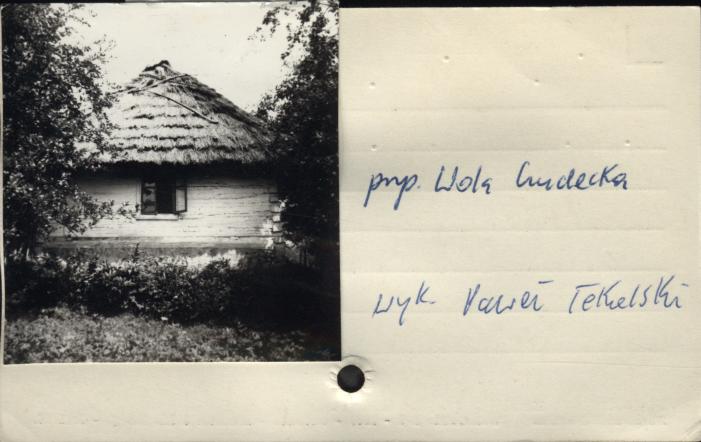 pnp. Wola Cudecka
wyk. Paweł Tekelski